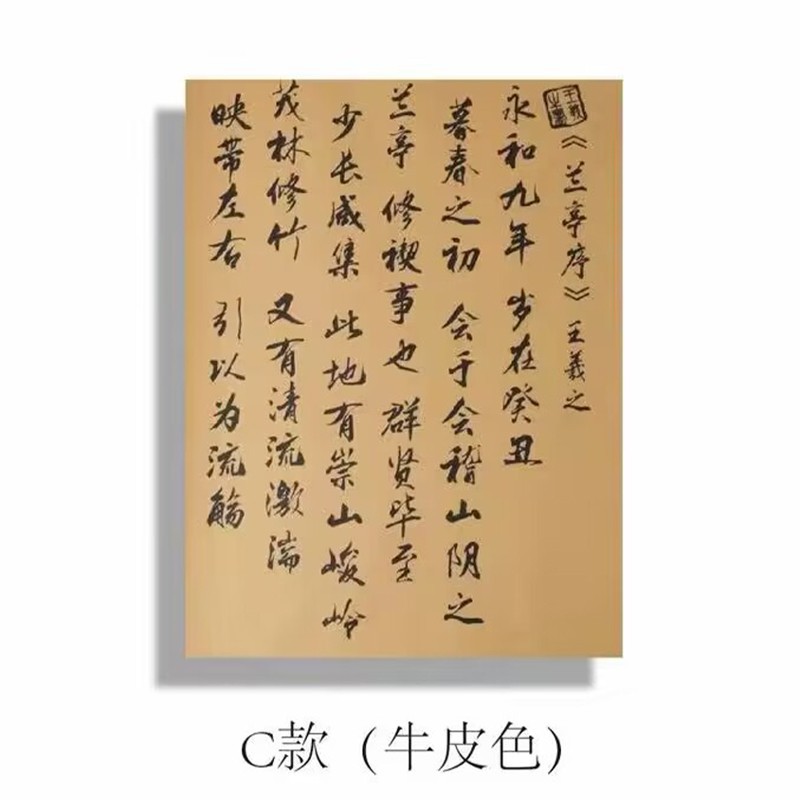 《兰亭序》王羲之
永和九年 岁在癸丑
暮春之初 会于会稽山阴之
兰亭 修禊事也 群贤毕至
少长咸集 此地有崇山峻岭
茂林修竹 又有清流激湍
映带左右 引以为流觞
C款（牛皮色）